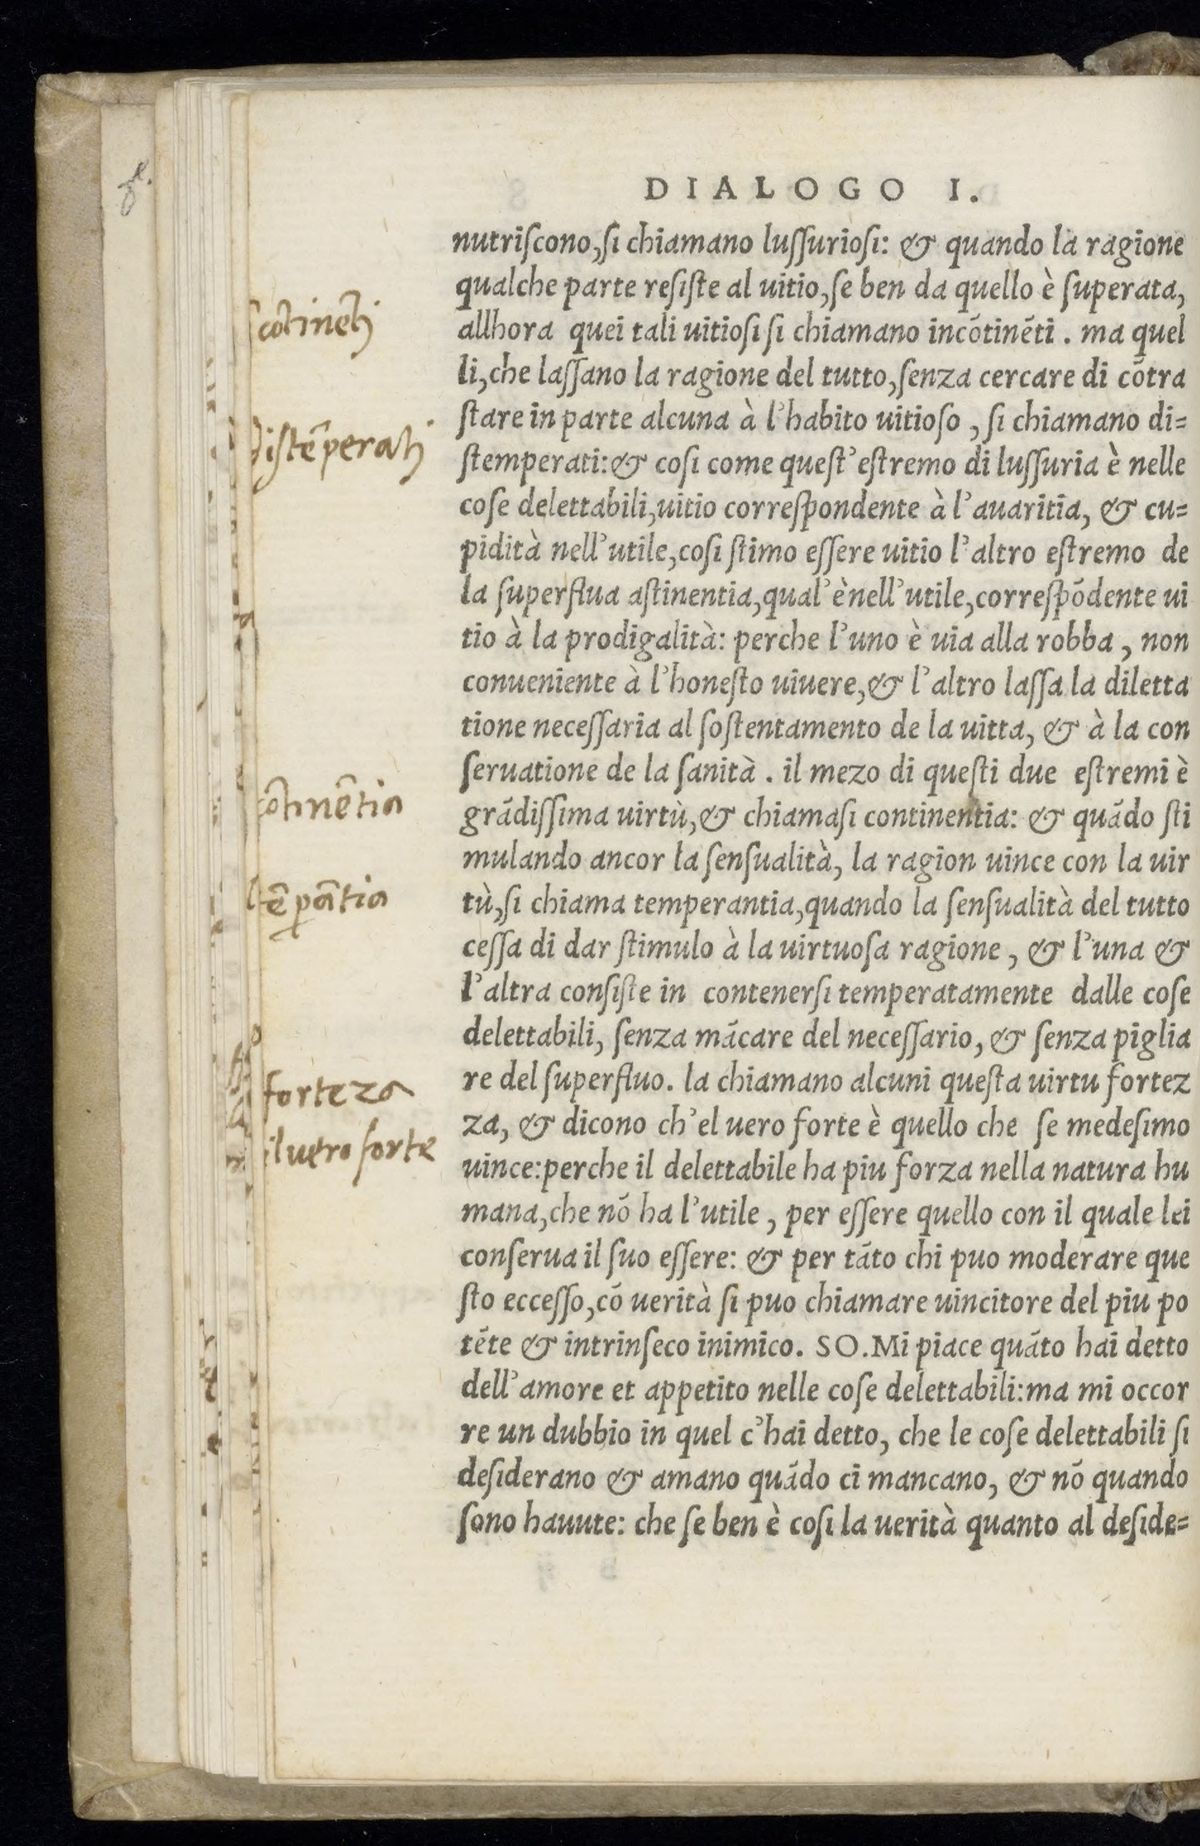 DIALOGO I.
nutriſcono,ſi chiamano luſſurioſi: & quando la ragione
qualche parte reſiſte al uitio,ſe ben da quello è ſuperata,
allhora quei tali uitioſi ſi chiamano incõtinẽti . ma quel
li,che laſſano la ragione del tutto,ſenza cercare di cõtra
ſtare in parte alcuna à l'habito uitioſo , ſi chiamano di=
ſtemperati:& coſi come queſt'eſtremo di luſſuria è nelle
coſe delettabili,uitio correſpondente à l'auaritia, & cu=
pidità nell'utile,coſi ſtimo eſſere uitio l'altro eſtremo de
la ſuperflua aſtinentia,qual'è nell'utile,correſpõdente ui
tio à la prodigalità: perche l'uno è uia alla robba , non
conueniente à l'honeſto uiuere,& l'altro laſſa la diletta
tione neceſſaria al ſoſtentamento de la uitta, & à la con
ſeruatione de la ſanità . il mezo di queſti due eſtremi è
grãdiſſima uirtù,& chiamaſi continentia: & quãdo ſti
mulando ancor la ſenſualità, la ragion uince con la uir
tù,ſi chiama temperantia,quando la ſenſualità del tutto
ceſſa di dar ſtimulo à la uirtuoſa ragione , & l'una &
l'altra conſiſte in contenerſi temperatamente dalle coſe
delettabili, ſenza mãcare del neceſſario, & ſenza piglia
re del ſuperfluo. la chiamano alcuni queſta uirtu fortez
za, & dicono ch'el uero forte è quello che ſe medeſimo
uince:perche il delettabile ha piu forza nella natura hu
mana,che nõ ha l'utile , per eſſere quello con il quale lei
conſerua il ſuo eſſere: & per tãto chi puo moderare que
ſto ecceſſo,cõ uerità ſi puo chiamare uincitore del piu po
tẽte & intrinſeco inimico. SO.Mi piace quãto hai detto
dell'amore et appetito nelle coſe delettabili:ma mi occor
re un dubbio in quel c'hai detto, che le coſe delettabili ſi
deſiderano & amano quãdo ci mancano, & nõ quando
ſono hauute: che ſe ben è coſi la uerità quanto al deſide=
cõtinẽti
diſtẽperati
cõtinẽtia
tẽperãtia
forteza
il uero forte